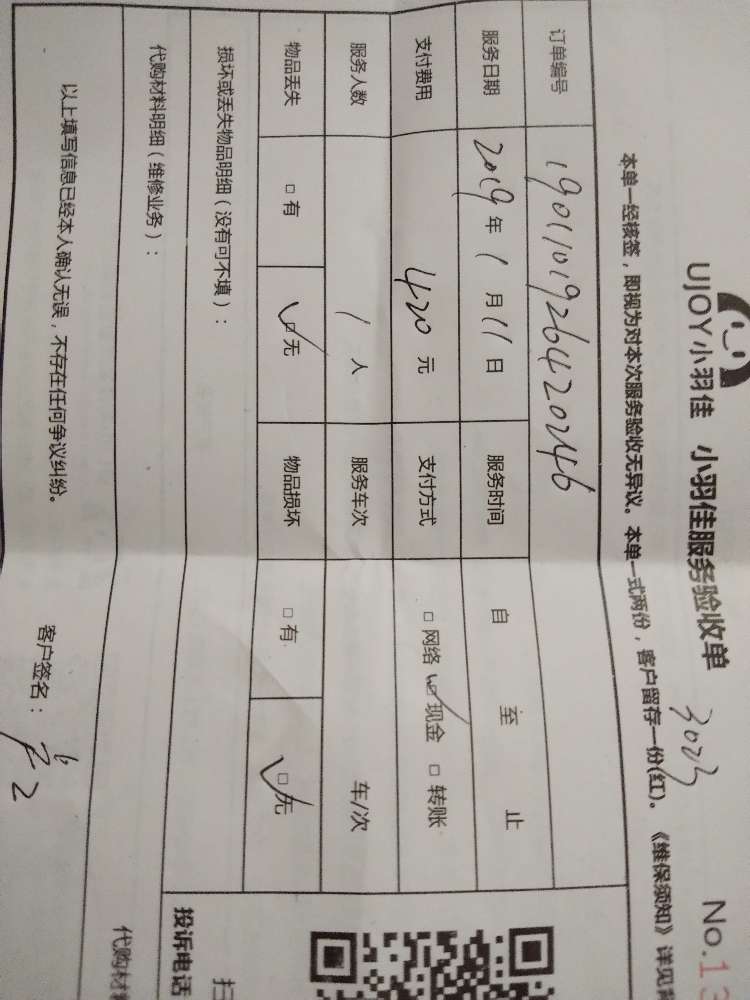 UJOY小羽佳 小羽佳服务验收单
No.13
3023
本单一经核签，即视为对本次服务验收无异议。本单一式两份，客户留存一份(红)。《维保须知》详见
订单编号 19011019264202446
服务日期 2019年1月11日 服务时间 自 至 止
支付费用 420元 支付方式 □网络 ☑现金 □转账
服务人数 1人 服务车次 车/次
物品丢失 □有 ☑无 物品损坏 □有 ☑无
损坏或丢失物品明细（没有可不填）：
代购材料明细（维修业务）：
以上填写信息已经本人确认无误，不存在任何争议纠纷。
客户签名：
投诉电话
扫
代购材